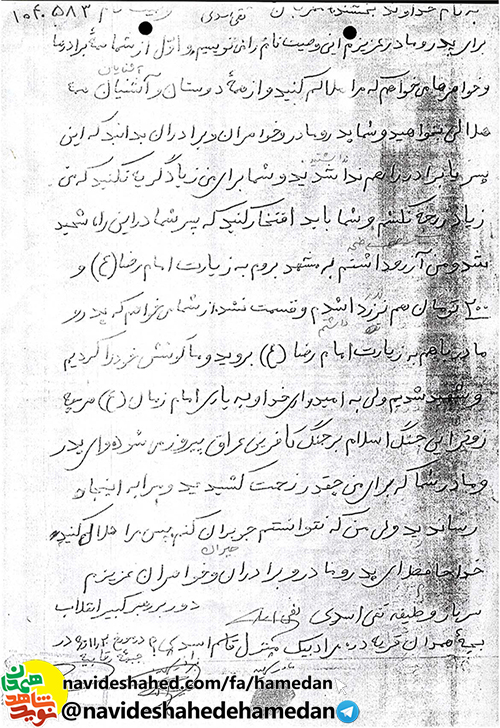 به نام خداوند بخشنده مهربان تقی اسدی وصیت نام 104.583
برای پدر و مادر عزیزم این وصیت نام را می نویسم و اوّل از شما همهٔ برادرها
و خواهرها می خواهم که مرا حلال کنید و از همهٔ دوستان و آشنایان همه
حلالی بخواهید و شما پدر و مادر و خواهران و برادران بدانید که این
پسر یا برادر را هم نداشتید و شما برای من زیاد گریه نکنید که من
زیاد رنجه نکشم و شما باید افتخار کنید که پسر شما در این راه شهید
شد و من آرزو داشتم به مشهد بروم به زیارت امام رضا (ع) و
200 تومان هم نزر داشتم و قسمت نشد از شما می خواهم که پدر و
مادر با هم به زیارت امام رضا (ع) بروید و ما کوشش خود را کردیم
و شهید شدیم ولی به امید وای خدا و به یاری امام زمان (ع) هر چه
زودتر این جنگ اسلام بر جنگ کافرین عراق پیروز می شود وای پدر
و مادر شما که برای من چقدر زحمت کشیدید و مرا به اینجا
رساندید ولی من که نتوانستم جبران کنم پس مرا حلال کنید
جبران
خداحافظ ای پدر و مادر و برادران و خواهران عزیزم
سرباز وظیفه تقی اسدی درود بر رهبر کبیر انقلاب
بچهٔ همدان قریه دره مرادبیک منزل قاسم اسدی
navideshahed.com/fa/hamedan
@navideshahedehamedan
نوید شاهد
همدان